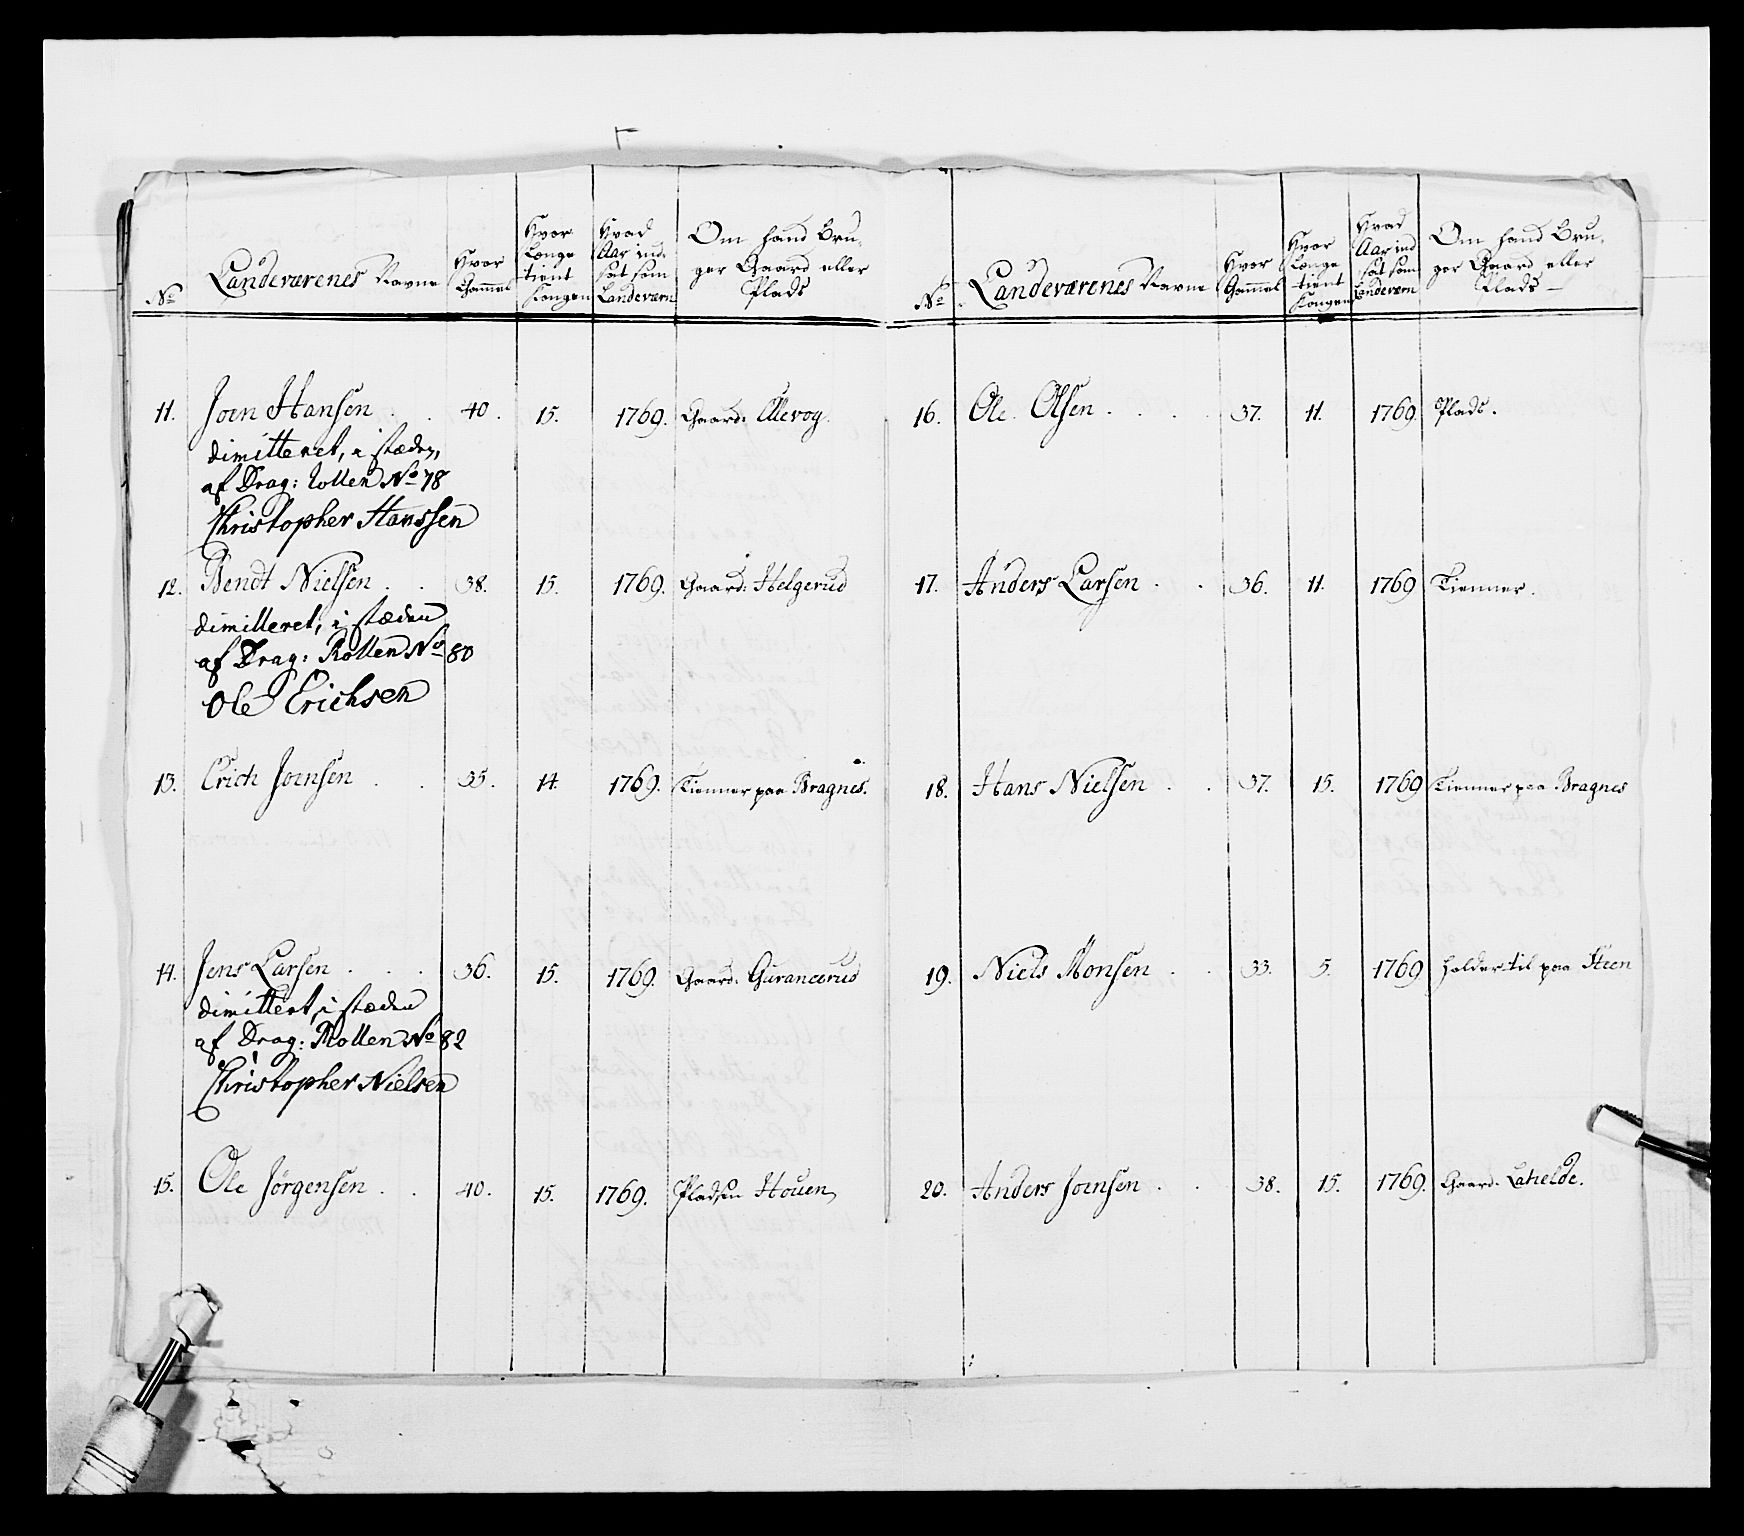 No
Landeværenes Navne
Hvor
Gammel
Hvor
Længe
tient
Kongen
Hvad
Aar ind-
sat som
Landeværn
Om hand Bru-
ger Gaard eller
Plads
11. Joen Hansen . . 40. 15. 1769. Gaard: Ullevog.
dimitteret, i stæden,
af Drag: Rollen No 78
Christopher Hanssen
12. Bendt Nielsen . . 38. 15. 1769. Gaard: Helgerud
dimitteret, i stæden
af Drag: Rollen No 80
Ole Erichsen
13. Erich Joensen . . 35. 14. 1769. Tienner paa Bragnes.
14. Jens Larsen . . . 36. 15. 1769. Gaard:
dimittert, i stæden
af Drag: Rollen No 82
Christopher Nielsen
15. Ole Jörgensen . . 40. 15. 1769. Pladsen Houen
No
Landeværenes Navne
Hvor
Gammel
Hvor
Længe
tient
Kongen
Hvad
Aar ind
sat som
Landeværn
Om hand Bru-
ger Gaard eller
Plads
16. Ole Olsen . . . . 37. 11. 1769. Plads.
17. Anders Larsen . . 36. 11. 1769 Tienner.
18. Hans Nielsen . . 37. 15. 1769 Tienner paa Bragnes
19. Niels Monsen . . 33. 5. 1769 holder til paa Steen
20. Anders Joensen . . 38. 15. 1769. Gaard: